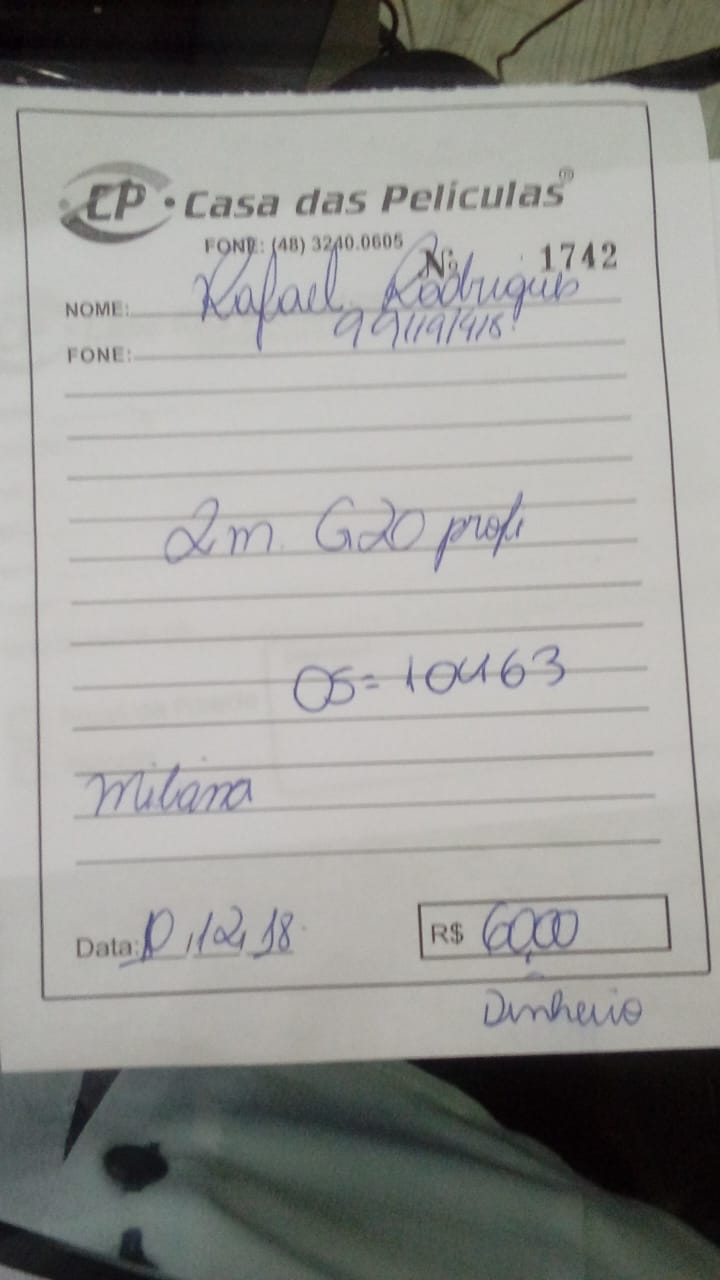 CP • Casa das Películas®
FONE: (48) 3240.0605
Nº 1742
NOME: Rafael Rodrigues
FONE:
2m. G20 profi
OS= 10463
Milana
Data: 12, 18
R$ 60,00
Dinheiro